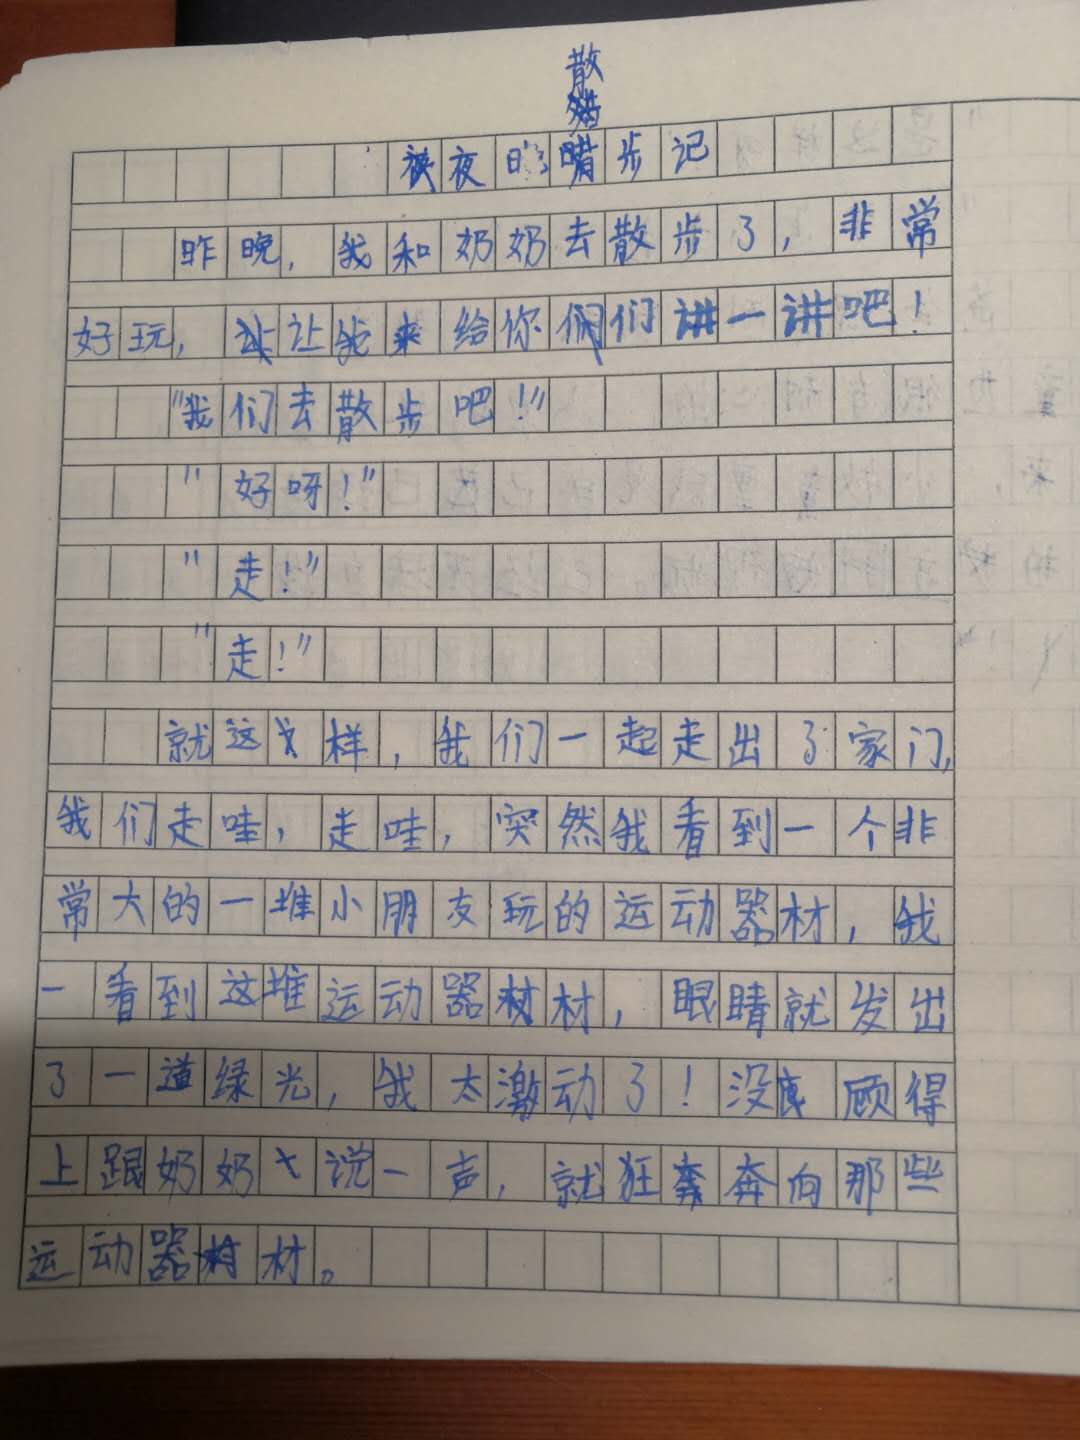 散
夜晚散步记
昨晚，我和奶奶去散步了，非常
好玩，让我来给你们讲一讲吧！
“我们去散步吧！”
“好呀！”
“走！”
“走！”
就这样，我们一起走出了家门，
我们走哇，走哇，突然我看到一个非
常大的一堆小朋友玩的运动器材，我
一看到这堆运动器材，眼睛就发出
了一道绿光，我太激动了！没顾得
上跟奶奶说一声，就狂奔向那些
运动器材。